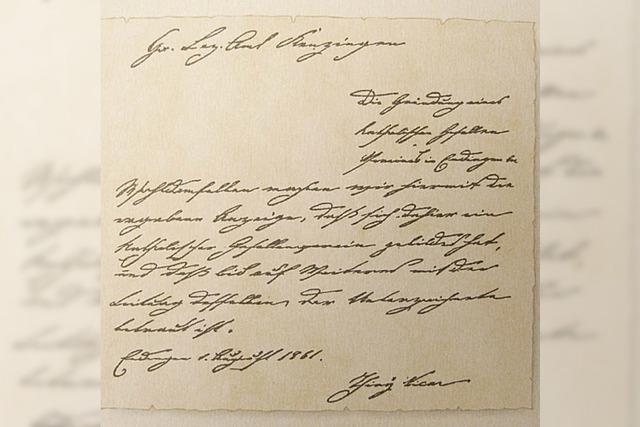 Gr. Bez. Amt Kenzingen
Die Gründung eines
katholischen Gesellen
Vereines in Endingen
machen wir hiermit die
ergebene Anzeige, daß sich dahier ein
katholischer Gesellenverein gebildet hat,
und daß bis auf Weiteres mit der
Leitung desselben der Unterzeichnete
betraut ist.
Endingen 1. August 1861.
Vicar